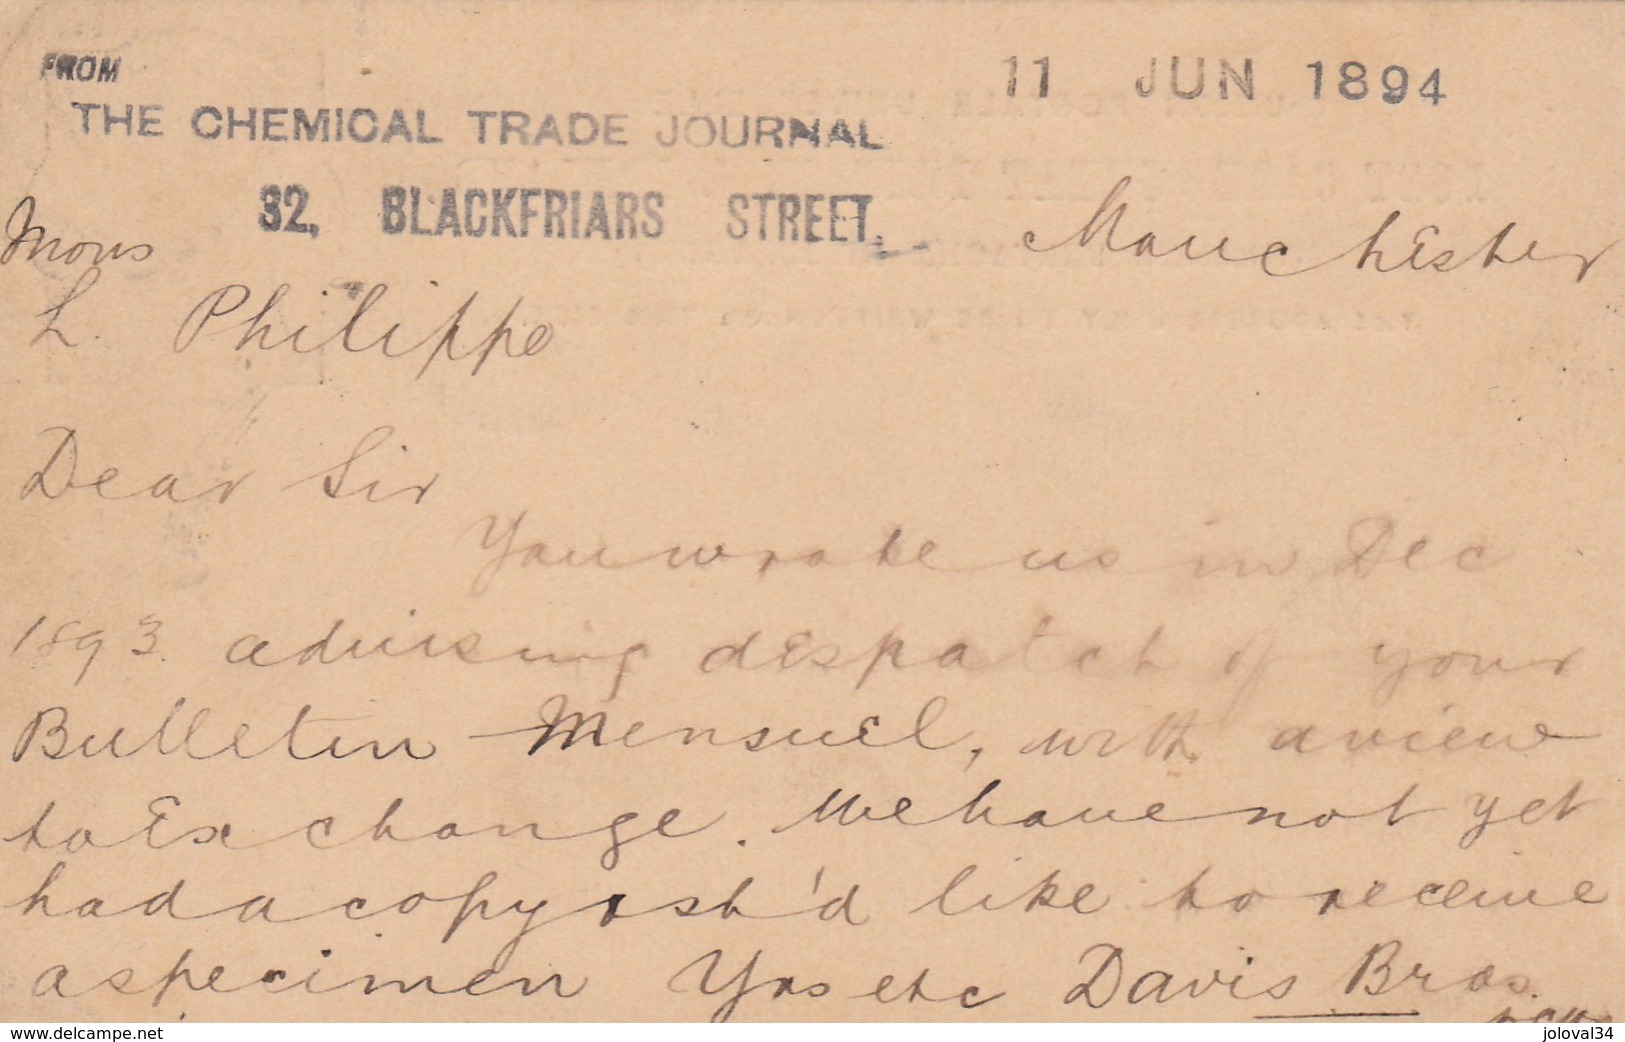 FROM
11 JUN 1894
THE CHEMICAL TRADE JOURNAL
32, BLACKFRIARS STREET,
Manchester
Mons
L. Philippe
Dear Sir
You wrote us in Dec
1893. advising despatch of your
Bulletin Mensuel, with a view
to Exchange. We have not yet
had a copy & sh'd like to receive
a specimen Yrs etc Davis Bros.
www.delcampe.net
joloval34